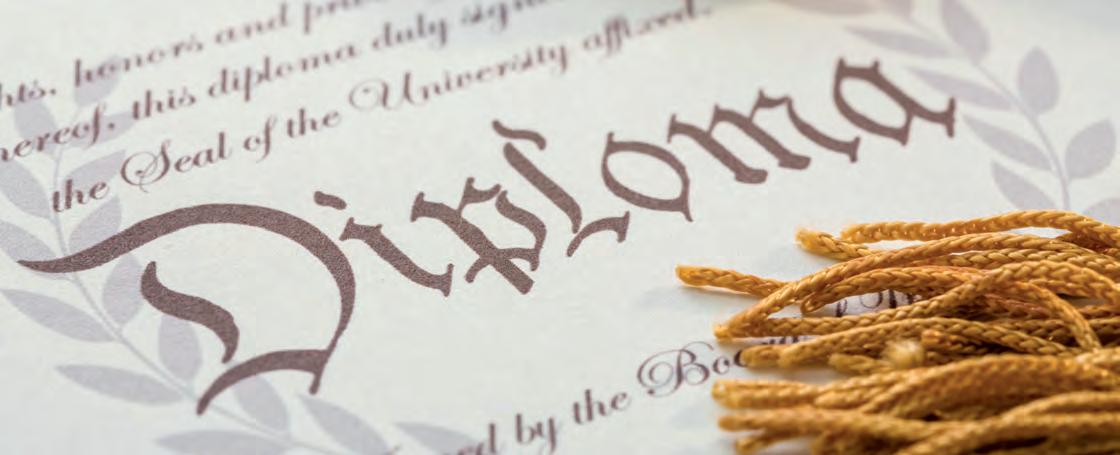 honors and
hereof, this diploma duly
the Seal of the University affixed.
Diploma
by the